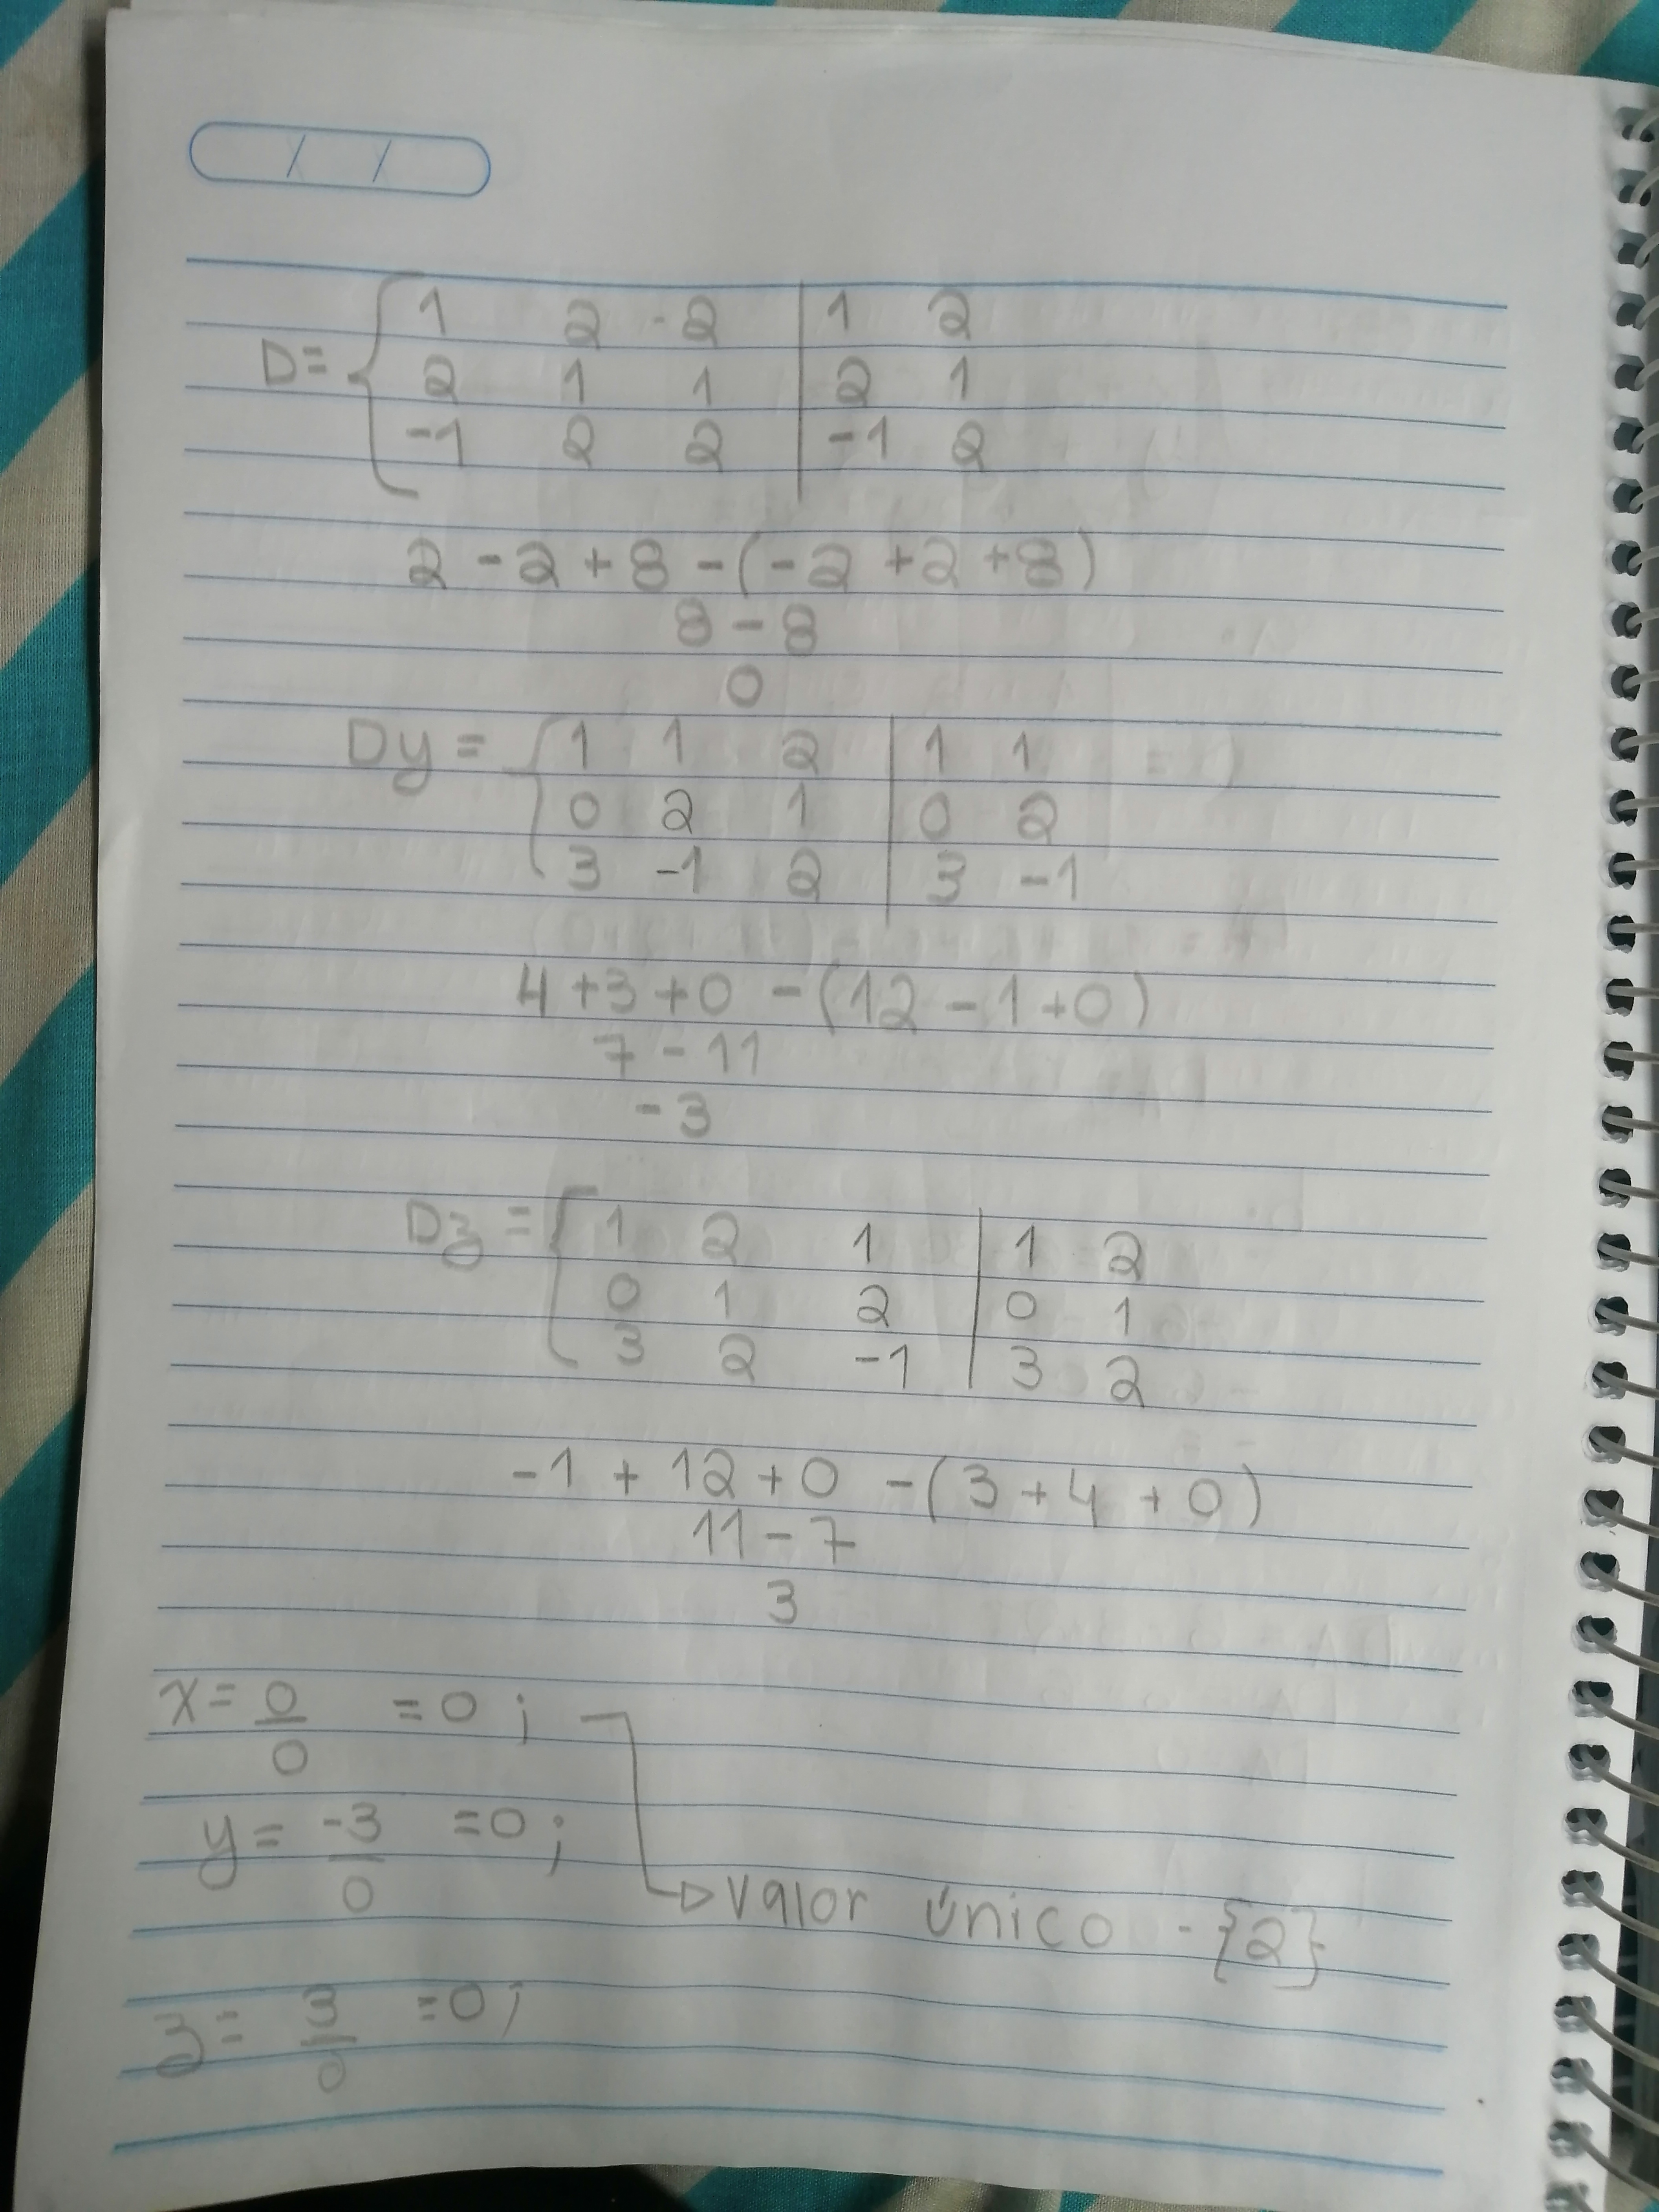 / /
D= { 1 2 -2 | 1 2
2 1 1 | 2 1
-1 2 2 | -1 2
2 - 2 + 8 - (-2 + 2 + 8)
8 - 8
0
Dy = { 1 1 2 | 1 1
0 2 1 | 0 2
3 -1 2 | 3 -1
4 + 3 + 0 - (12 - 1 + 0)
7 - 11
- 3
Dz = { 1 2 1 | 1 2
0 1 2 | 0 1
3 2 -1 | 3 2
-1 + 12 + 0 - (3 + 4 + 0)
11 - 7
3
x = 0/0 = 0 ;
y = -3/0 = 0 ;
valor único - {2}
z = 3/0 = 0 ;